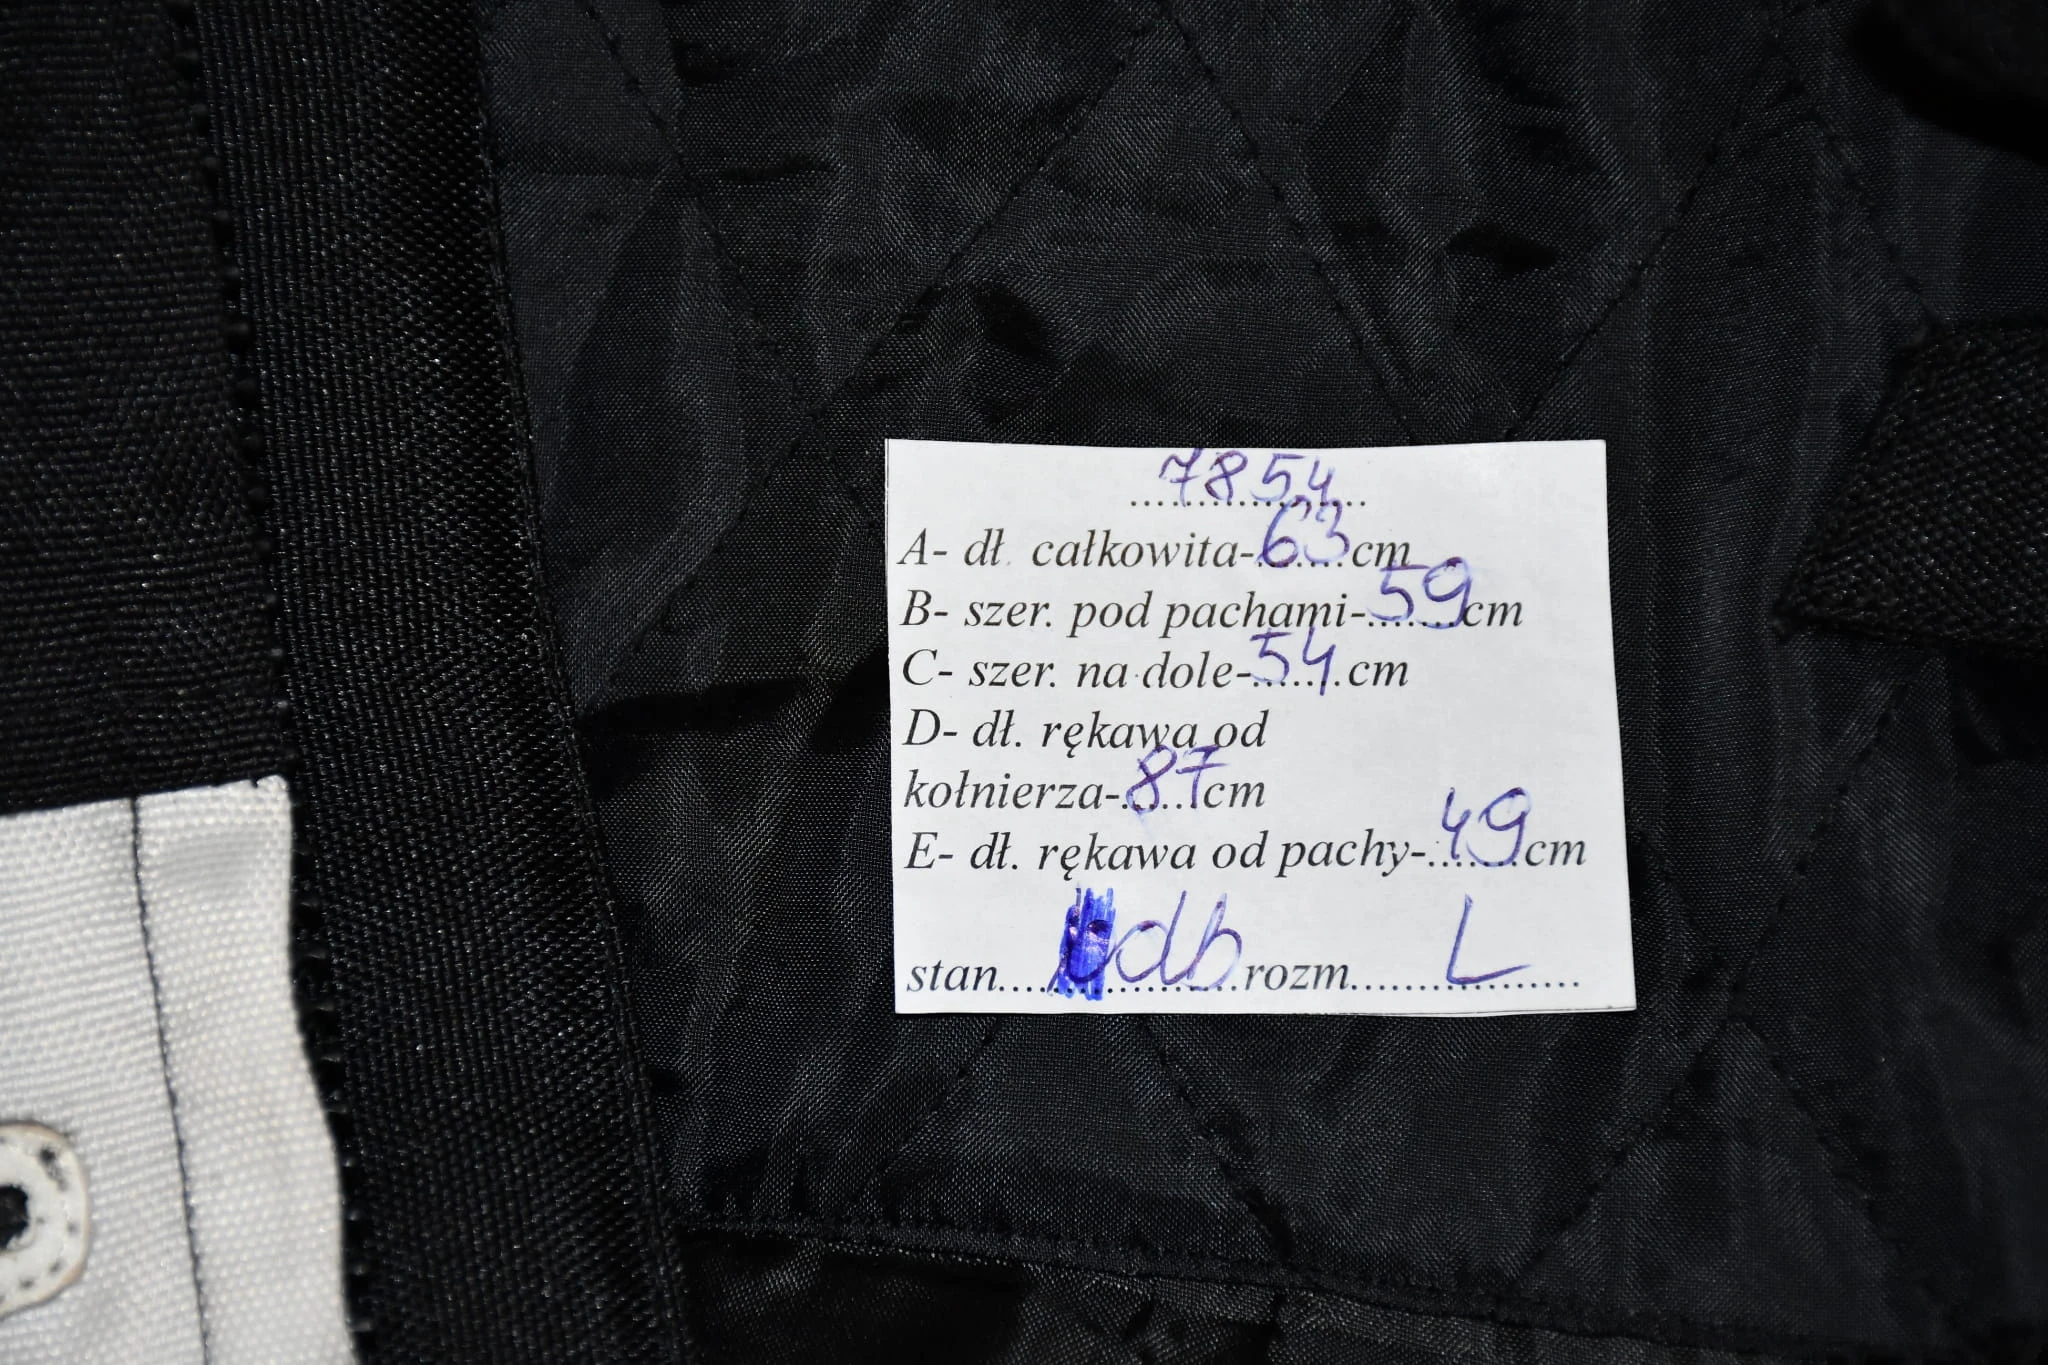 7854
A- dł. całkowita-63cm
B- szer. pod pachami-59cm
C- szer. na dole-54cm
D- dł. rękawa od
kołnierza-87cm
E- dł. rękawa od pachy-49cm
stan....db rozm....L....